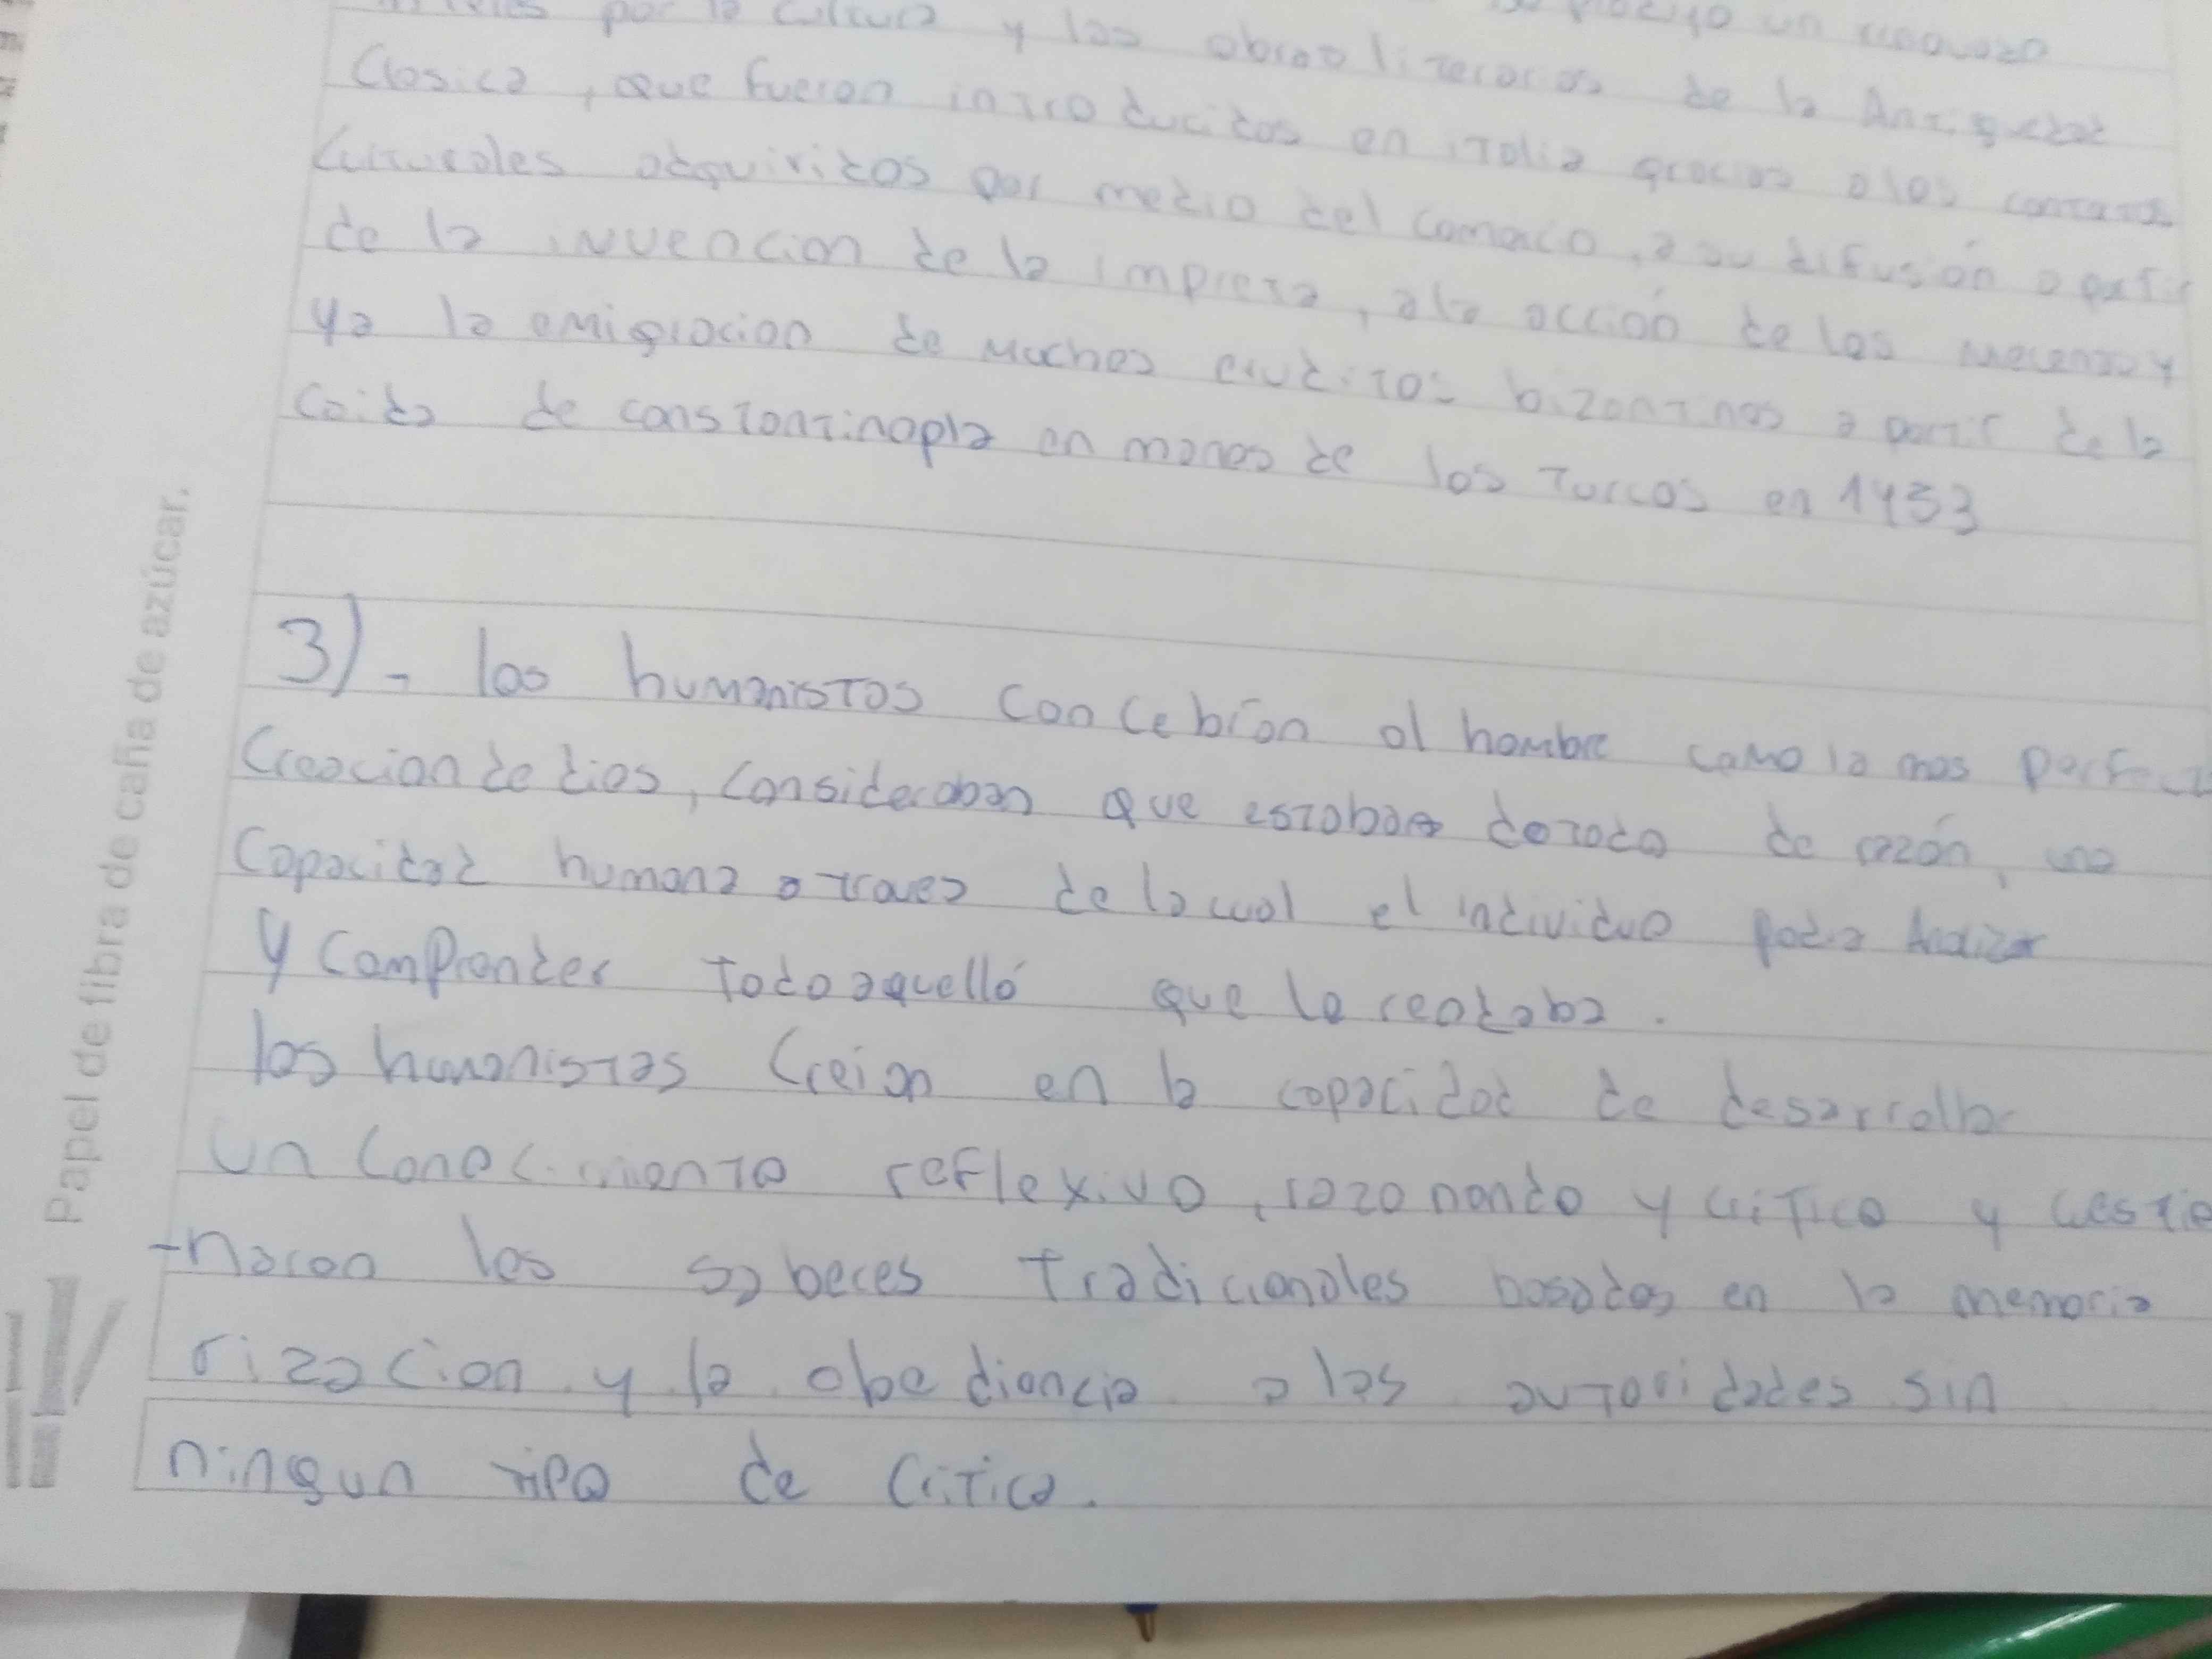 por la cultura y las obras literarias de la Antiguedad
Clasica, que fueron introducidos en italia gracias a los
Culturales adquiridos por medio del comercio, a su difusión a partir
de la invencion de la impreta, a la acción de los mecenas y
ya la emigracion de muchos eruditos bizantinos a partir de la
Caida de constantinopla en manos de los Turcos en 1453
3)- los humanistas concebían al hombre como la mas perfecta
Creacion de dios, consideraban que estaba dotado de razón, una
Capacidad humana a traves de la cual el individuo podia Analizar
y Comprender Todo aquelló que lo reodaba.
los humanistas Creian en la capacidad de desarrollar
un Conocimiento reflexivo, razonando y critico y cuestio
-naron los saberes tradicionales basados en la memoria
rizacion y la obediancia a las autoridades sin
ningun tipo de Critica.
Papel de fibra de caña de azúcar.